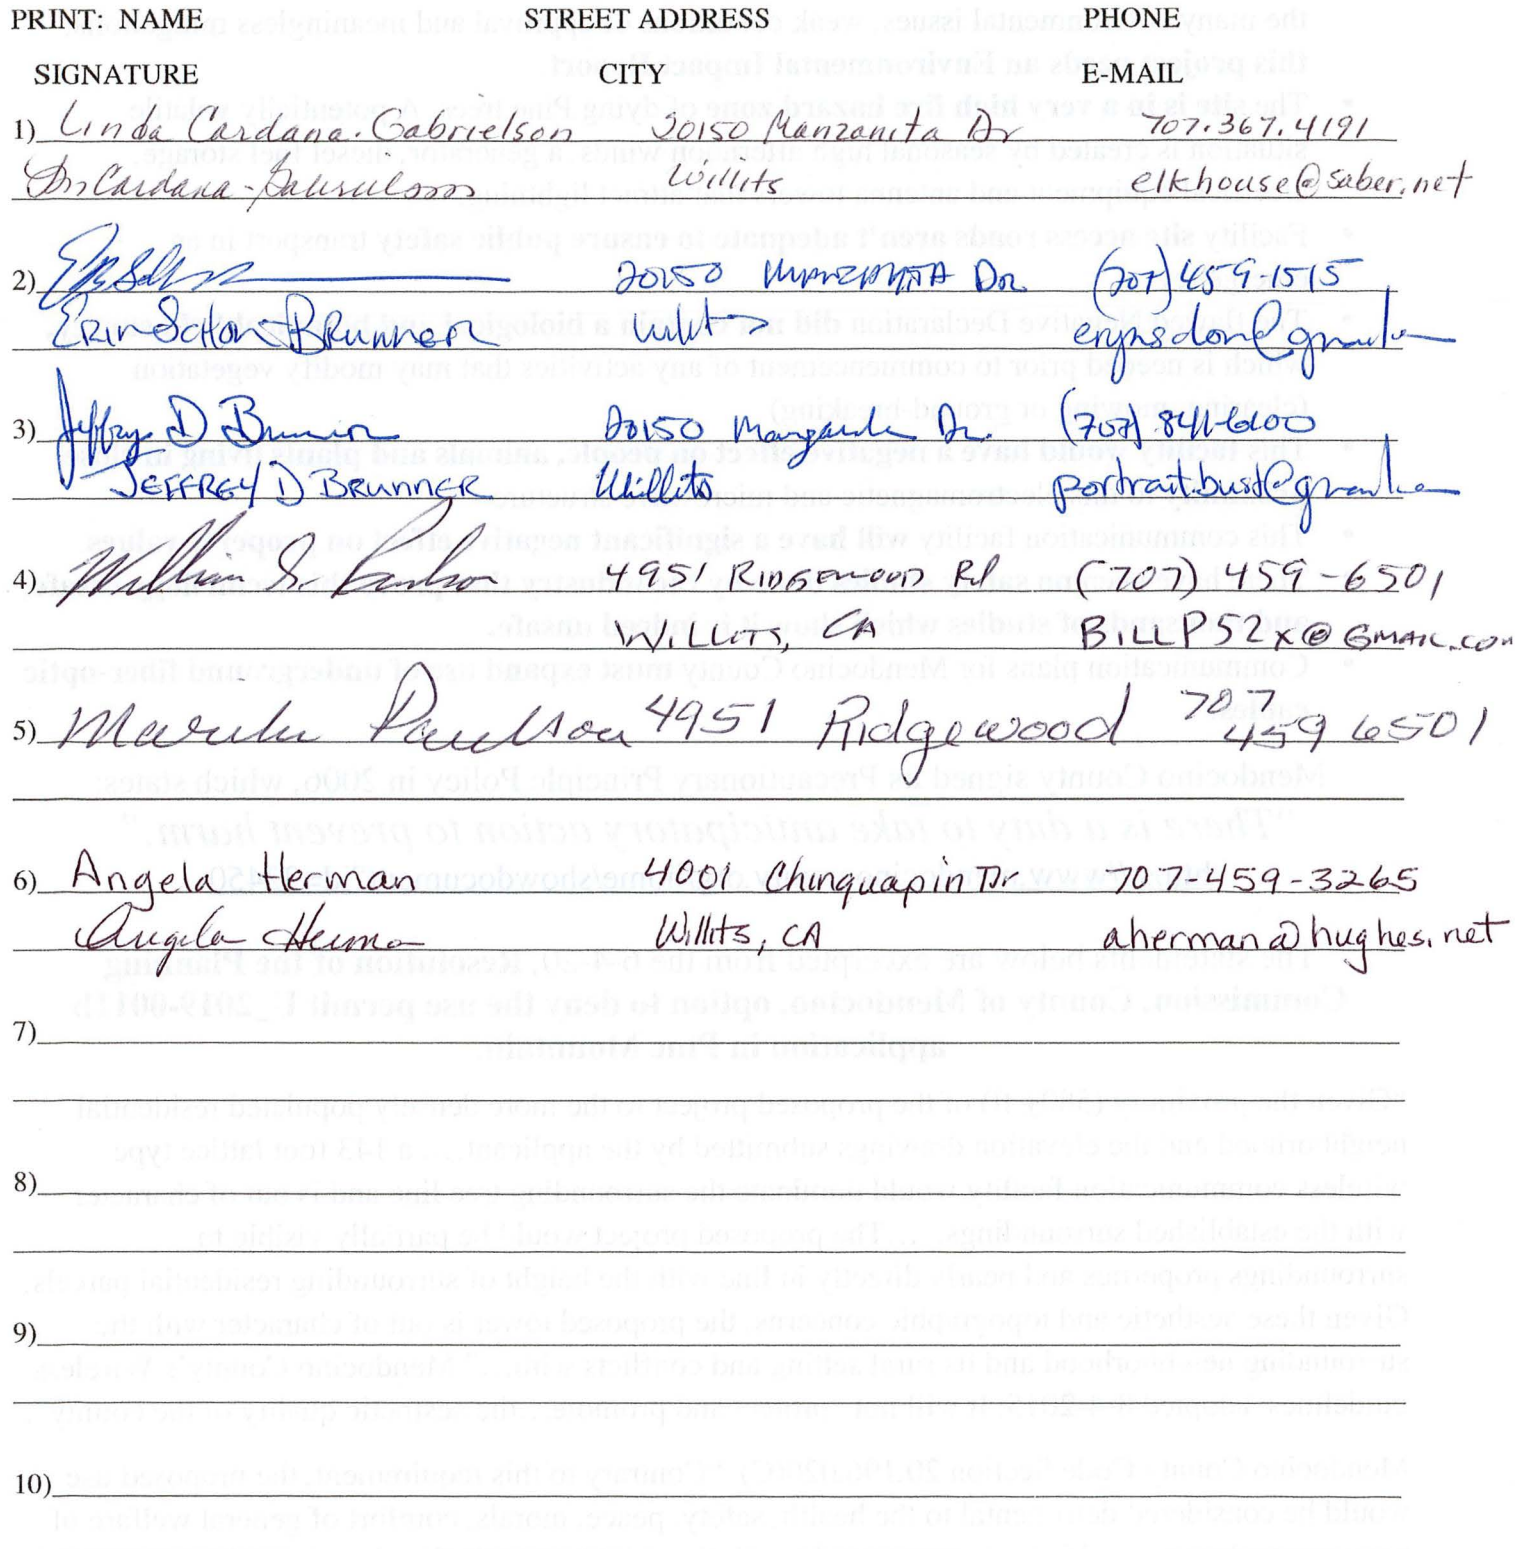 PRINT: NAME STREET ADDRESS PHONE
SIGNATURE CITY E-MAIL
1) Linda Cardana-Gabrielson 20150 Manzanita Dr 707.367.4191
Cardana-Gabrielson Willits elkhouse@saber.net
2) 20150 Manzanita Dr. (707) 459-1515
Erin Sotton Brunner Willits
3) Jeffrey D Brunner 20150 Manzanita Dr. (707) 841-6600
JEFFREY D BRUNNER Willits
4) William S. Paulson 4951 RIDGEWOOD Rd (707) 459-6501
WILLITS, CA BILLP52X@GMAIL.COM
5) Paulson 4951 Ridgewood 707 459 6501
6) Angela Herman 4001 Chinquapin Dr. 707-459-3265
Angela Herman Willits, CA aherman@hughes.net
7)
8)
9)
10)